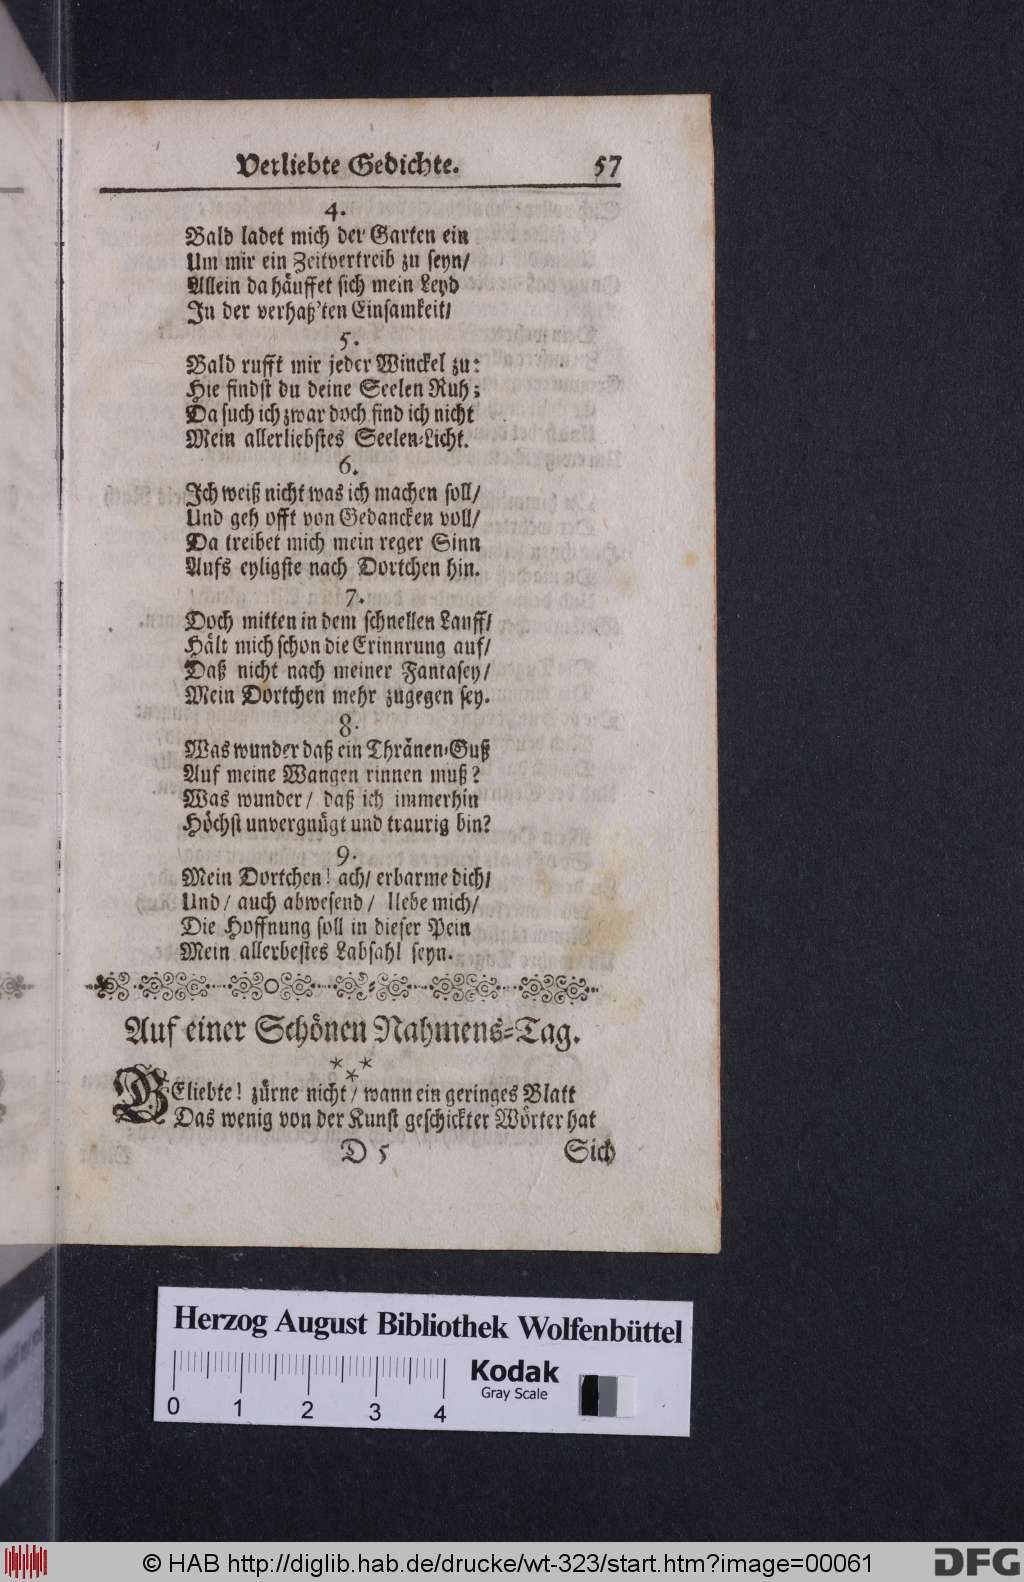 Verliebte Gedichte. 57
4.
Bald ladet mich der Garten ein
Um mir ein Zeitvertreib zu seyn/
Allein da häuffet sich mein Leyd
In der verhaß'ten Einsamkeit/
5.
Bald rufft mir jeder Winckel zu:
Hie findst du deine Seelen Ruh;
Da such ich zwar doch find ich nicht
Mein allerliebstes Seelen-Licht.
6.
Ich weiß nicht was ich machen soll/
Und geh offt von Gedancken voll/
Da treibet mich mein reger Sinn
Aufs eyligste nach Dortchen hin.
7.
Doch mitten in dem schnellen Lauff/
Hält mich schon die Erinnrung auf/
Daß nicht nach meiner Fantasey/
Mein Dortchen mehr zugegen sey.
8.
Was wunder daß ein Thränen-Guß
Auf meine Wangen rinnen muß?
Was wunder/ daß ich immerhin
Höchst unvergnügt und traurig bin?
9.
Mein Dortchen! ach/ erbarme dich/
Und/ auch abwesend/ liebe mich/
Die Hoffnung soll in dieser Pein
Mein allerbestes Labsahl seyn.
Auf einer Schönen Nahmens-Tag.
* * *
BEliebte! zürne nicht/ wann ein geringes Blatt
Das wenig von der Kunst geschickter Wörter hat
D 5 Sich
Herzog August Bibliothek Wolfenbüttel
Kodak
Gray Scale
0 1 2 3 4
© HAB http://diglib.hab.de/drucke/wt-323/start.htm?image=00061
DFG